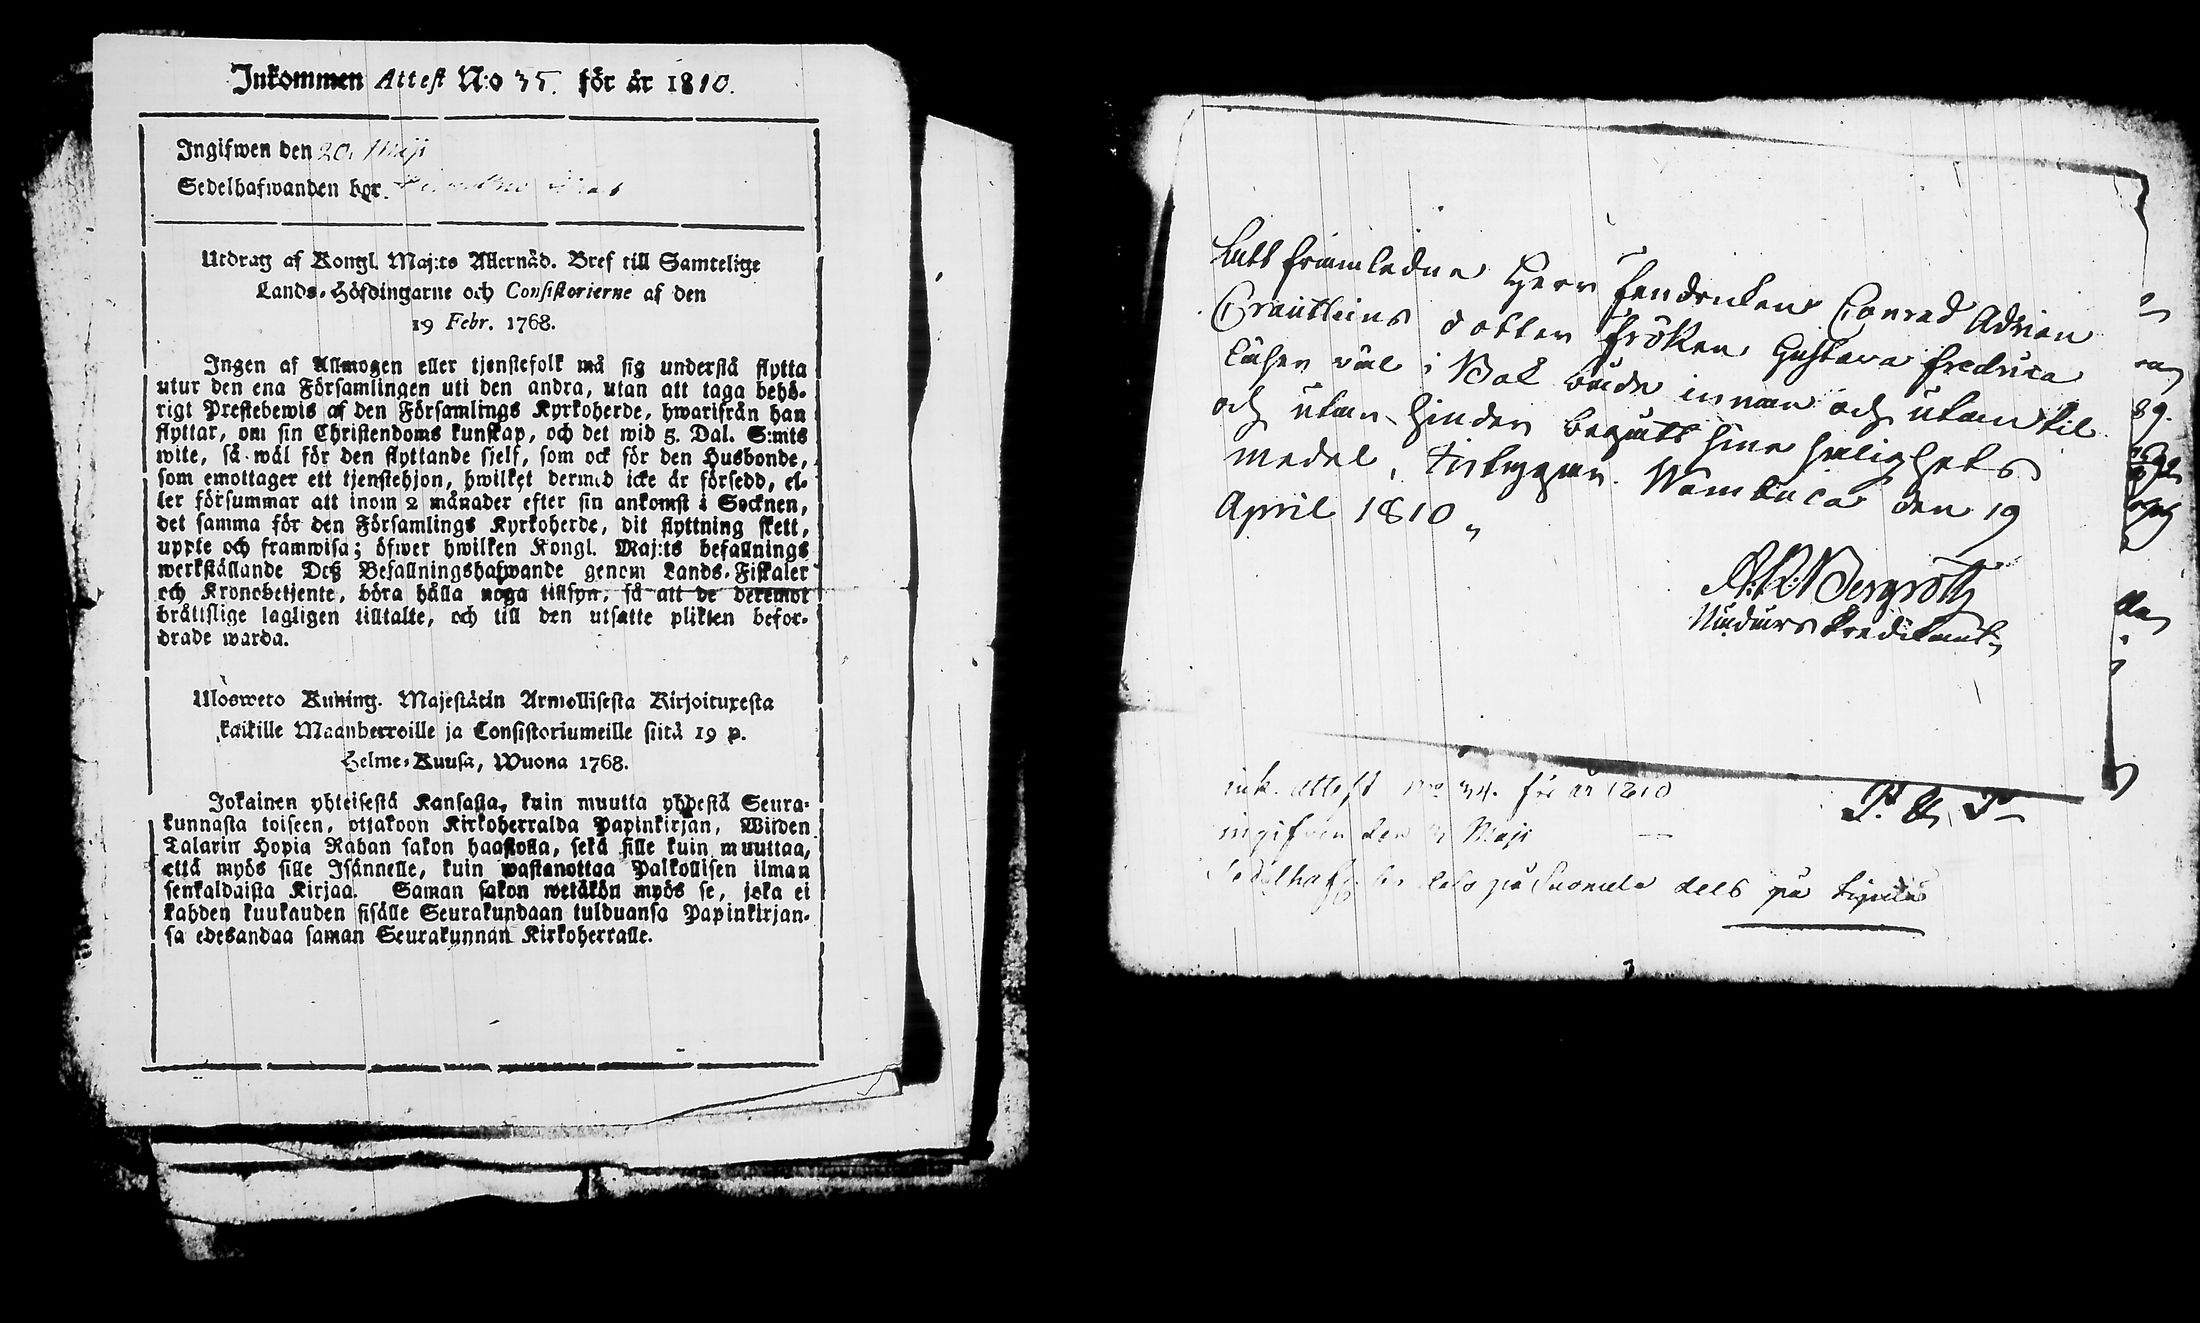 Inkommen Attest N:o 35. för år 1810.
Ingifwen den 20. Maji
Sedelhafwanden bor.
Utdrag af Kongl. Maj:ts Allernåd. Bref till Samtelige
Lands-Höfdingarne och Consistorierne af den
19 Febr. 1768.
Ingen af Allmogen eller tjenstefolk må sig understå flytta
utur den ena Församlingen uti den andra, utan att taga behö-
rigt Prestebewis af den Församlings Kyrkoherde, hwarifrån han
flyttar, om sin Christendoms kunskap, och det wid 5. Dal. S:mts
wite, så wäl för den flyttande sjelf, som ock för den Husbonde,
som emottager ett tjenstehjon, hwilket dermed icke är försedd, el-
ler försummar att inom 2 månader efter sin ankomst i Socknen,
det samma för den Församlings Kyrkoherde, dit flyttning skett,
uppte och framwisa; öfwer hwilken Kongl. Maj:ts befallnings
werkställande Deß Befallningshafwande genom Lands-Fiskaler
och Kronobetjente, böra hålla noga tillsyn, så att de deremot
bråttslige lagligen tilltalte, och till den utsatte plikten befor-
drade warda.
Ulosweto Kuning. Majestätin Armollisesta Kirjoituxesta
kaikille Maanherroille ja Consistoriumeille siitä 19 p.
Helme-Kuusa, Wuona 1768.
Jokainen yhteisestä Kansasta, kuin muutta yhdestä Seura-
kunnasta toiseen, ottakoon Kirkoherralda Papinkirjan, Wiiden
Talarin Hopia Rahan sakon haastolla, sekä sille kuin muuttaa,
että myös sille Isännelle, kuin wastanottaa Palkollisen ilman
senkaldaista Kirjaa. Saman sakon wetäkön myös se, joka ei
kahden kuukauden sisälle Seurakundaan tulduansa Papinkirjan-
sa edesandaa saman Seurakunnan Kirkoherralle.
framledne Herr Fendricken Conrad Adrian
dotter Fröken Gustava Fredrica
Läser väl i Bok både innan och utan til
och utan hinder begått sine salighets
medel, den 19
April 1810
Bergroth
Predikant
ink. attest No 34. för år 1810
ingifven den Maji
dels på Suomela dels på